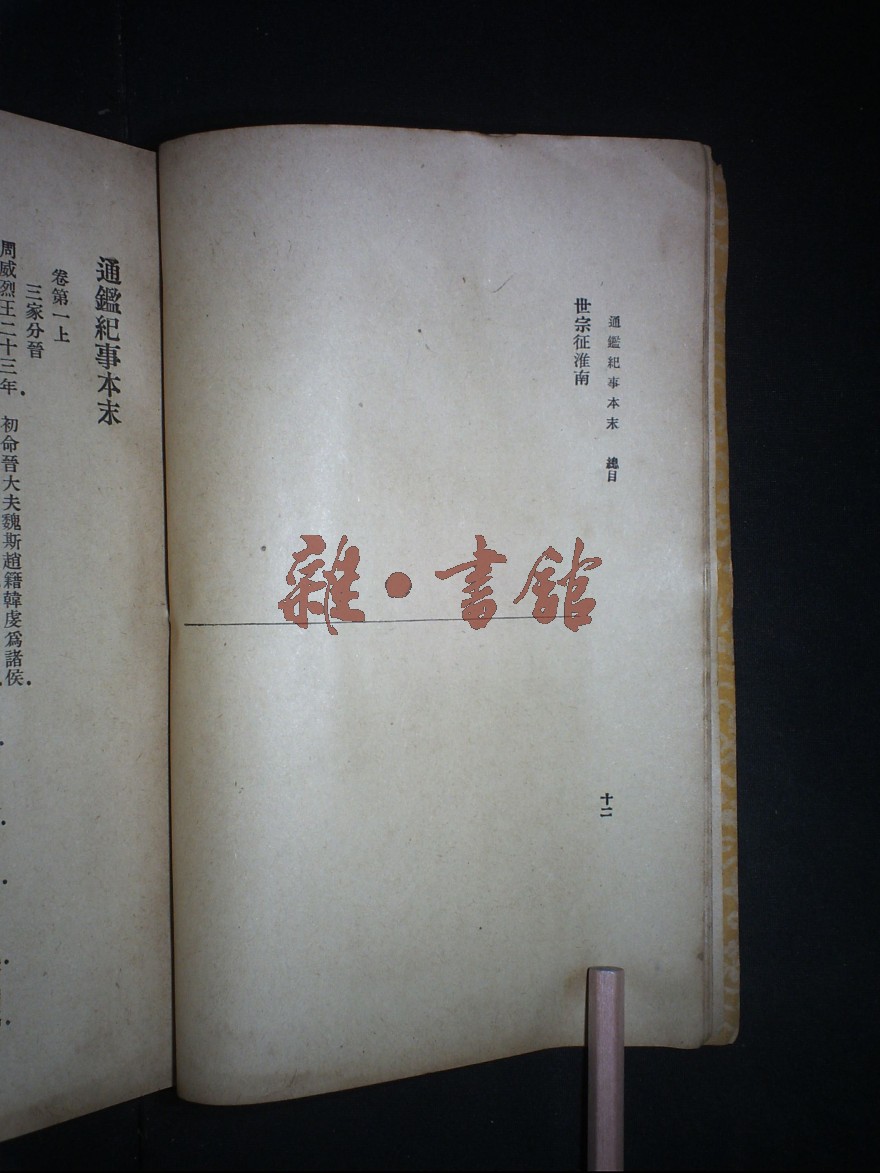 通鑑紀事本末 總目
十二
世宗征淮南
雜·書館
通鑑紀事本末
卷第一上
三家分晉
周威烈王二十三年 初命晉大夫魏斯趙籍韓虔爲諸侯